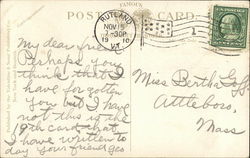 POST CARD
RUTLAND
NOV 15
7-30P
1910
VT.
My dear friend
Perhaps you
think that I
have forgotten
you but I have
not this is the
19th card that
I have written to
day your friend Geo
Miss Bertha
Attleboro,
Mass